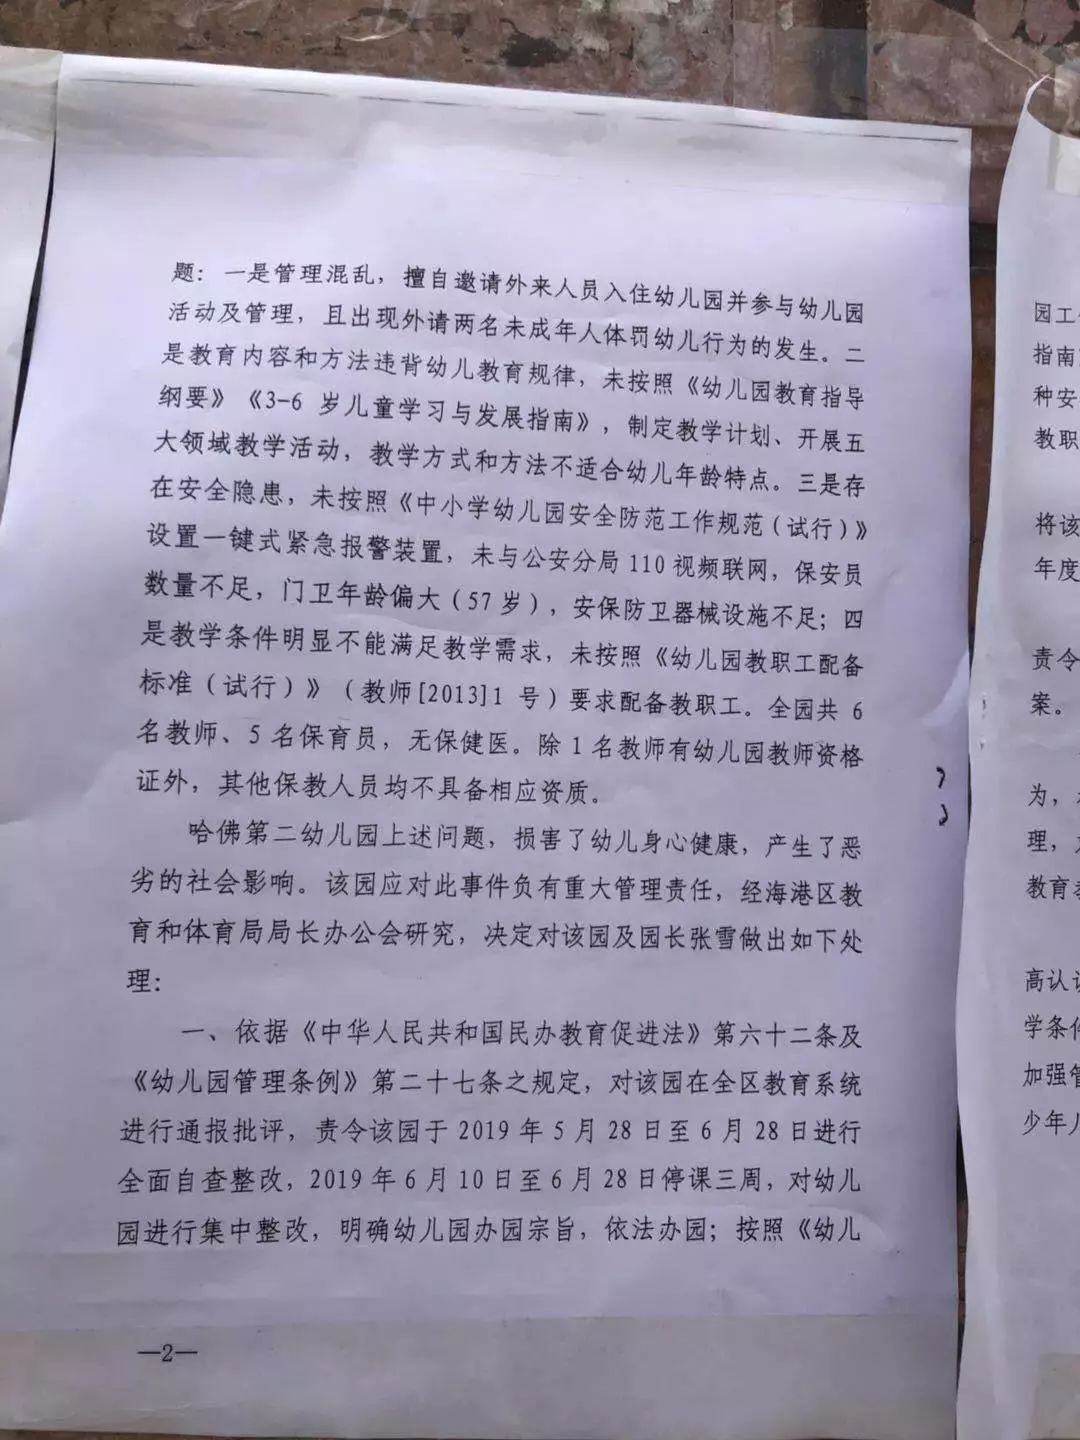 题：一是管理混乱，擅自邀请外来人员入住幼儿园并参与幼儿园
活动及管理，且出现外请两名未成年人体罚幼儿行为的发生。二
是教育内容和方法违背幼儿教育规律，未按照《幼儿园教育指导
纲要》《3-6 岁儿童学习与发展指南》，制定教学计划、开展五
大领域教学活动，教学方式和方法不适合幼儿年龄特点。三是存
在安全隐患，未按照《中小学幼儿园安全防范工作规范（试行）》
设置一键式紧急报警装置，未与公安分局 110 视频联网，保安员
数量不足，门卫年龄偏大（57 岁），安保防卫器械设施不足；四
是教学条件明显不能满足教学需求，未按照《幼儿园教职工配备
标准（试行）》（教师[2013]1 号）要求配备教职工。全园共 6
名教师、5 名保育员，无保健医。除 1 名教师有幼儿园教师资格
证外，其他保教人员均不具备相应资质。
哈佛第二幼儿园上述问题，损害了幼儿身心健康，产生了恶
劣的社会影响。该园应对此事件负有重大管理责任，经海港区教
育和体育局局长办公会研究，决定对该园及园长张雪做出如下处
理：
一、依据《中华人民共和国民办教育促进法》第六十二条及
《幼儿园管理条例》第二十七条之规定，对该园在全区教育系统
进行通报批评，责令该园于 2019 年 5 月 28 日至 6 月 28 日进行
全面自查整改，2019 年 6 月 10 日至 6 月 28 日停课三周，对幼儿
园进行集中整改，明确幼儿园办园宗旨，依法办园；按照《幼儿
—2—
园工
指南
种安
教职
将该
年度
责令
案。
为，
理，
教育
高认
学条件
加强管
少年儿